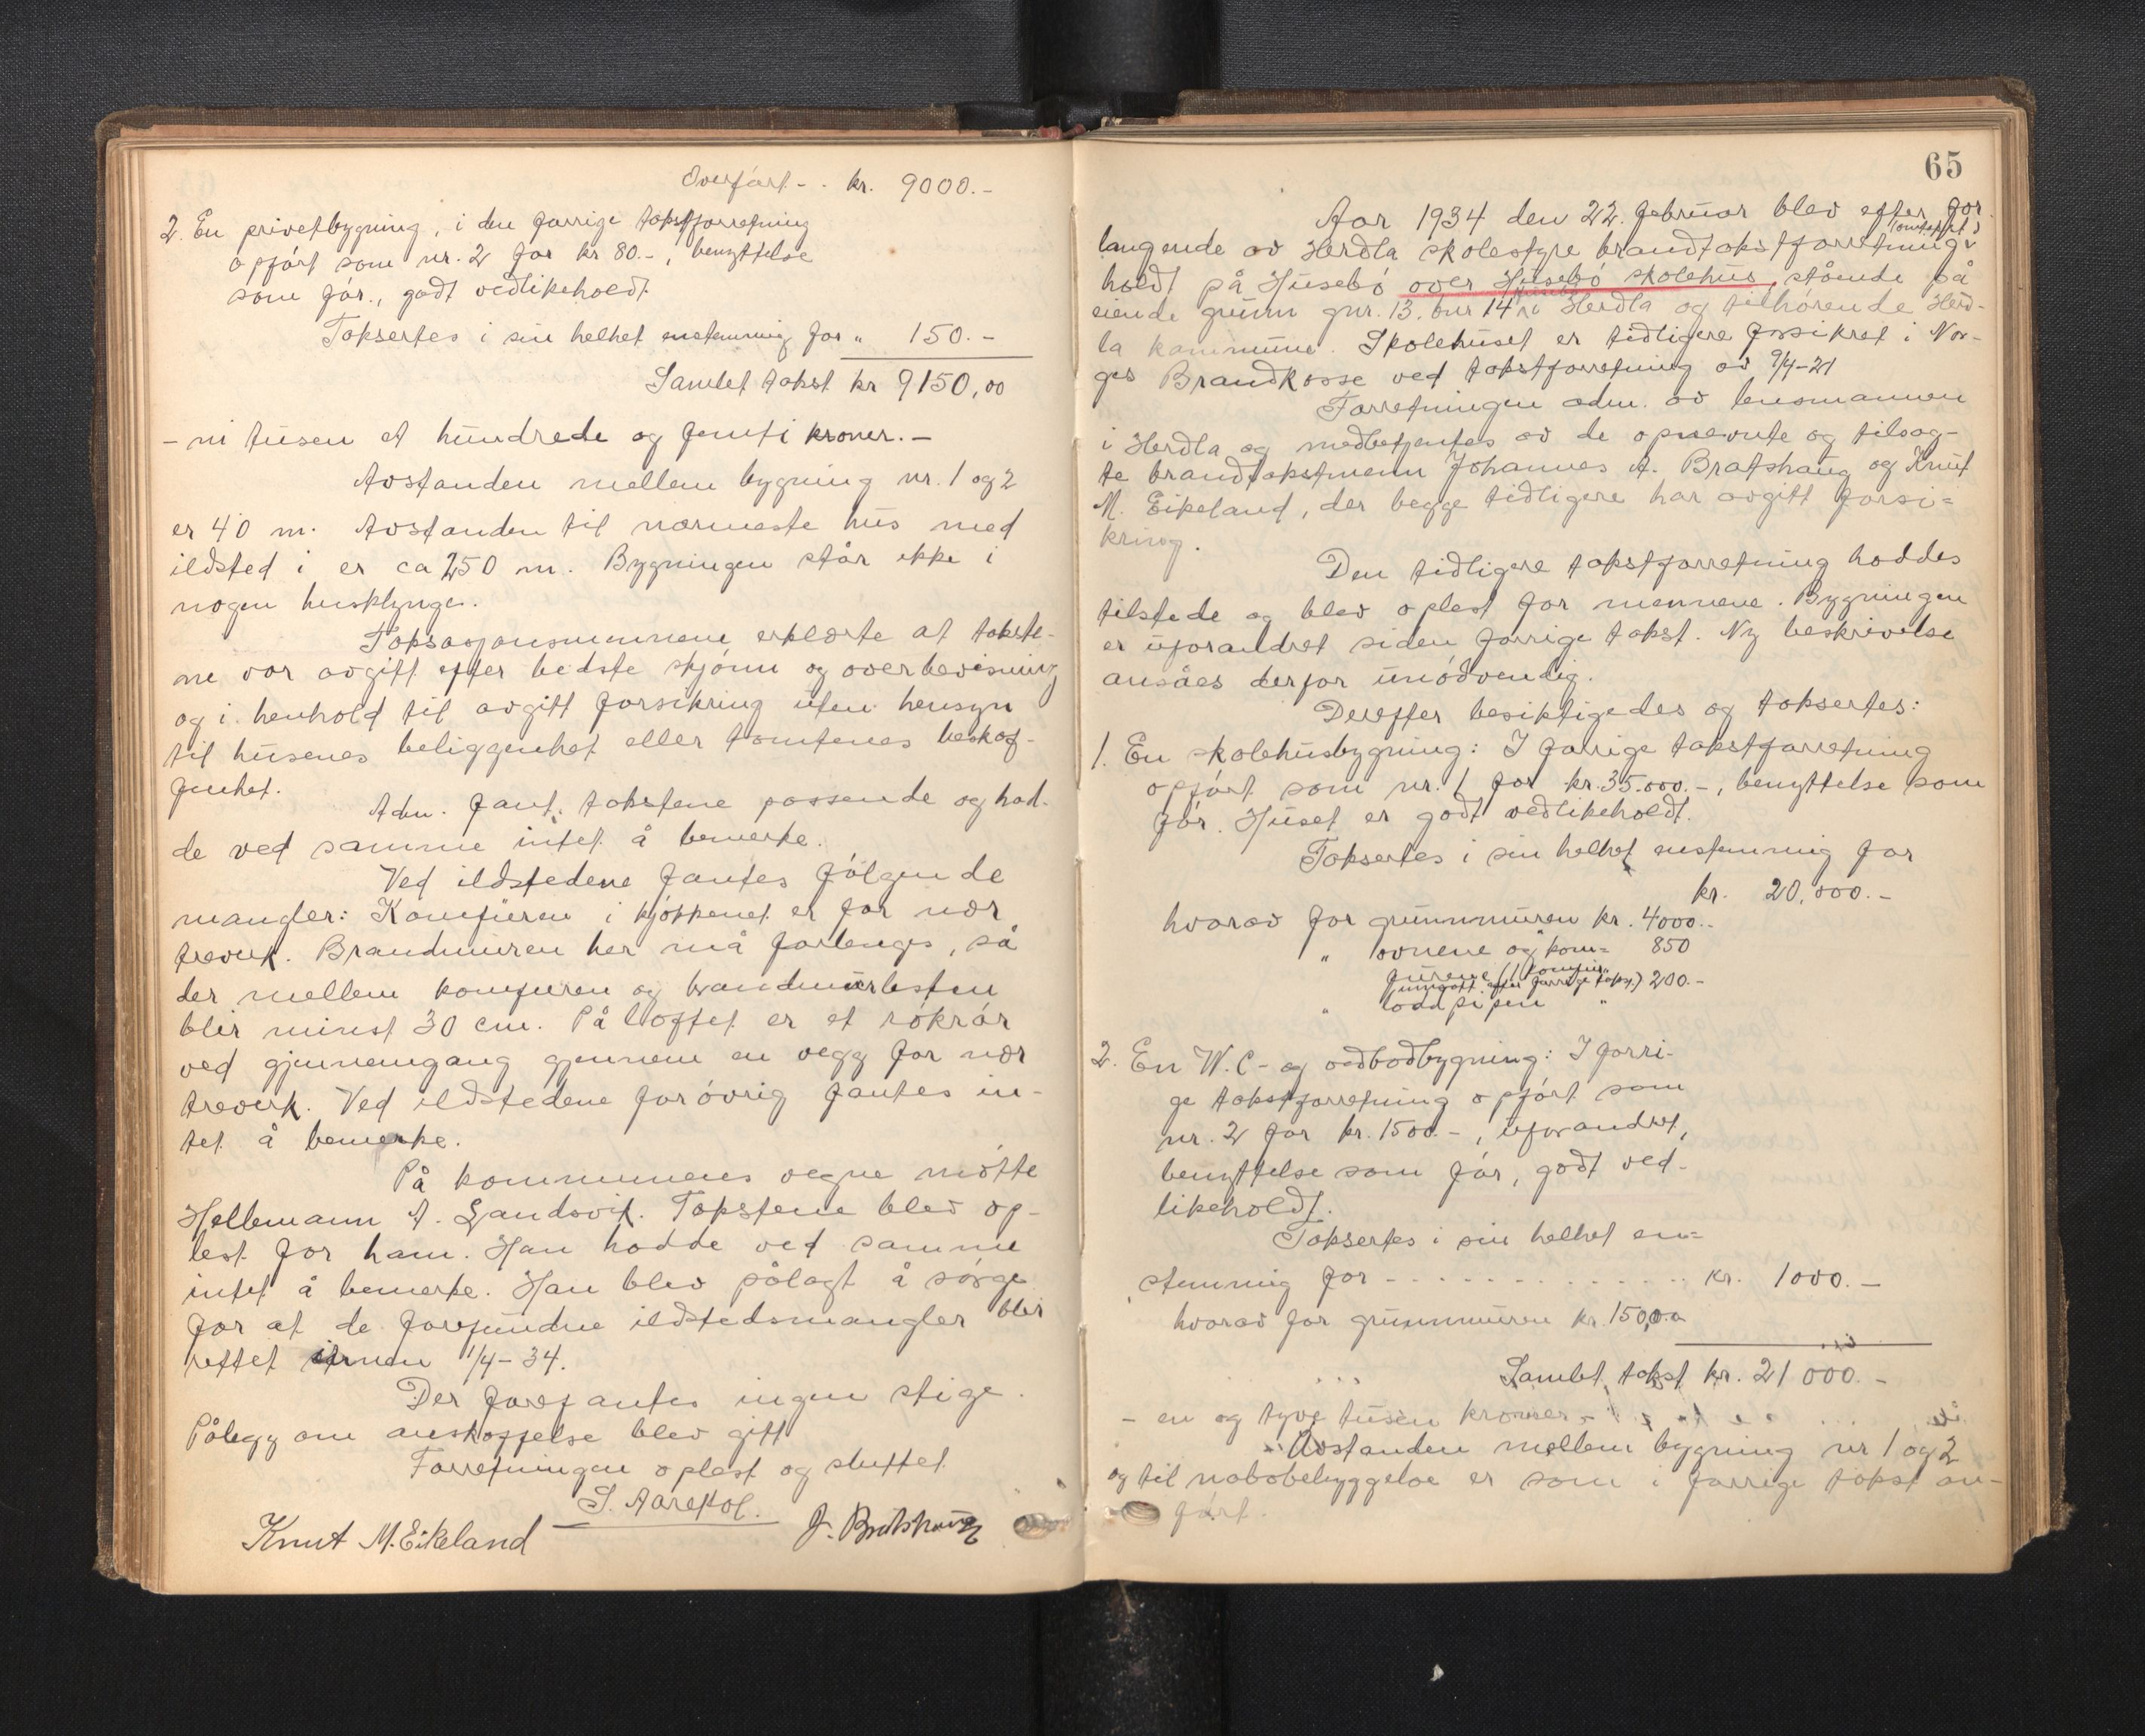 Overført - . kr. 9000.-
2. En privetbygning, i den forrige takstforretning
opført som nr. 2 for kr 80.-, benyttelse
som før., godt vedlikeholdt.
Taksertes i sin helhet enstemmig for " 150.-
Samlet takst kr 9150,00
- ni tusen et hundrede og femti kroner.-
Avstanden mellem bygning nr. 1 og 2
er 40 m. Avstanden til nærmeste hus med
ildsted i er ca 250 m. Bygningen står ikke i
nogen husklynge.
Taksasjonsmennene erklærte at takste-
ne var avgitt efter bedste skjønn og overbevisning
og i henhold til avgitt forsikring uten hensyn
til husenes beliggenhet eller tomtenes beskaf-
fenhet.
Adm. fant takstene passende og had-
de ved samme intet å bemerke.
Ved ildstedene fantes følgende
mangler: Komfuren i kjøkkenet er for nær
treverk. Brandmuren her må forlenges, så
der mellem komfuren og brandmurlisten
blir minst 30 cm. På loftet er et rökrør
ved gjennemgang gjennem en vegg for nær
treverk. Ved ildstedene forøvrig fantes in-
tet å bemerke.
På kommunens vegne møtte
Hellemann A. Sandvik. Takstene blev op-
lest for ham. Han hadde ved samme
intet å bemerke. Han blev pålagt å sørge
for at de forefundne ildstedsmangler blir
rettet innen 1/4-34.
Der forefantes ingen stige.
Pålegg om anskaffelse blev gitt
Forretningen oplest og sluttet
S. Aarekol.
Knut M. Eikeland J. Bratshaug
65
Aar 1934 den 22. februar blev efter for
langende av Herdla skolestyre brandtakstforretning
holdt på Husebö over Husebö skolehus, stående på
eiende grunn gnr. 13. bnr 14 i Herdla og tilhørende Herd-
la kommune. Skolehuset er tidligere forsikret i Nor-
ges Brandkasse ved takstforretning av 9/4-21
Forretningen adm. av lensmannen
i Herdla og medbetjentes av de opnevnte og tilsag-
te brandtakstmenn Johannes A. Bratshaug og Knut
M. Eikeland, der begge tidligere har avgitt forsi=
kring.
Den tidligere takstforretning haddes
tilstede og blev oplest for mennene. Bygningen
er uforandret siden forrige takst. Ny beskrivelse
ansåes derfor unödvendig.
Derefter besiktigedes og taksertes:
1. En skolehusbygning: I forrige takstforretning
opført som nr. 1 for kr. 35.000.-, benyttelse som
før. Huset er godt vedlikeholdt.
Taksertes i sin helhet enstemmig for
kr. 20,000.-
hvorav for grunnmuren kr. 4000.-
" ovnene og kom= 850
furene (1 komfur
inngått efter forrige takst) 200.-
" loddpipen "
2. En W.C- og vedbodbygning: I forri-
ge takstforretning opført som
nr. 2 for kr. 1500.-, uforandret,
benyttelse som før, godt ved-
likeholdt.
Taksertes i sin helhet en=
stemmig for - - - - - kr. 1000.-
hvorav for grunnmuren kr. 150,00
Samlet takst kr. 21 000.-
- en og tyve tusen kroner -
Avstanden mellem bygning nr 1 og 2
og til nabobebyggelse er som i forrige takst an-
ført.